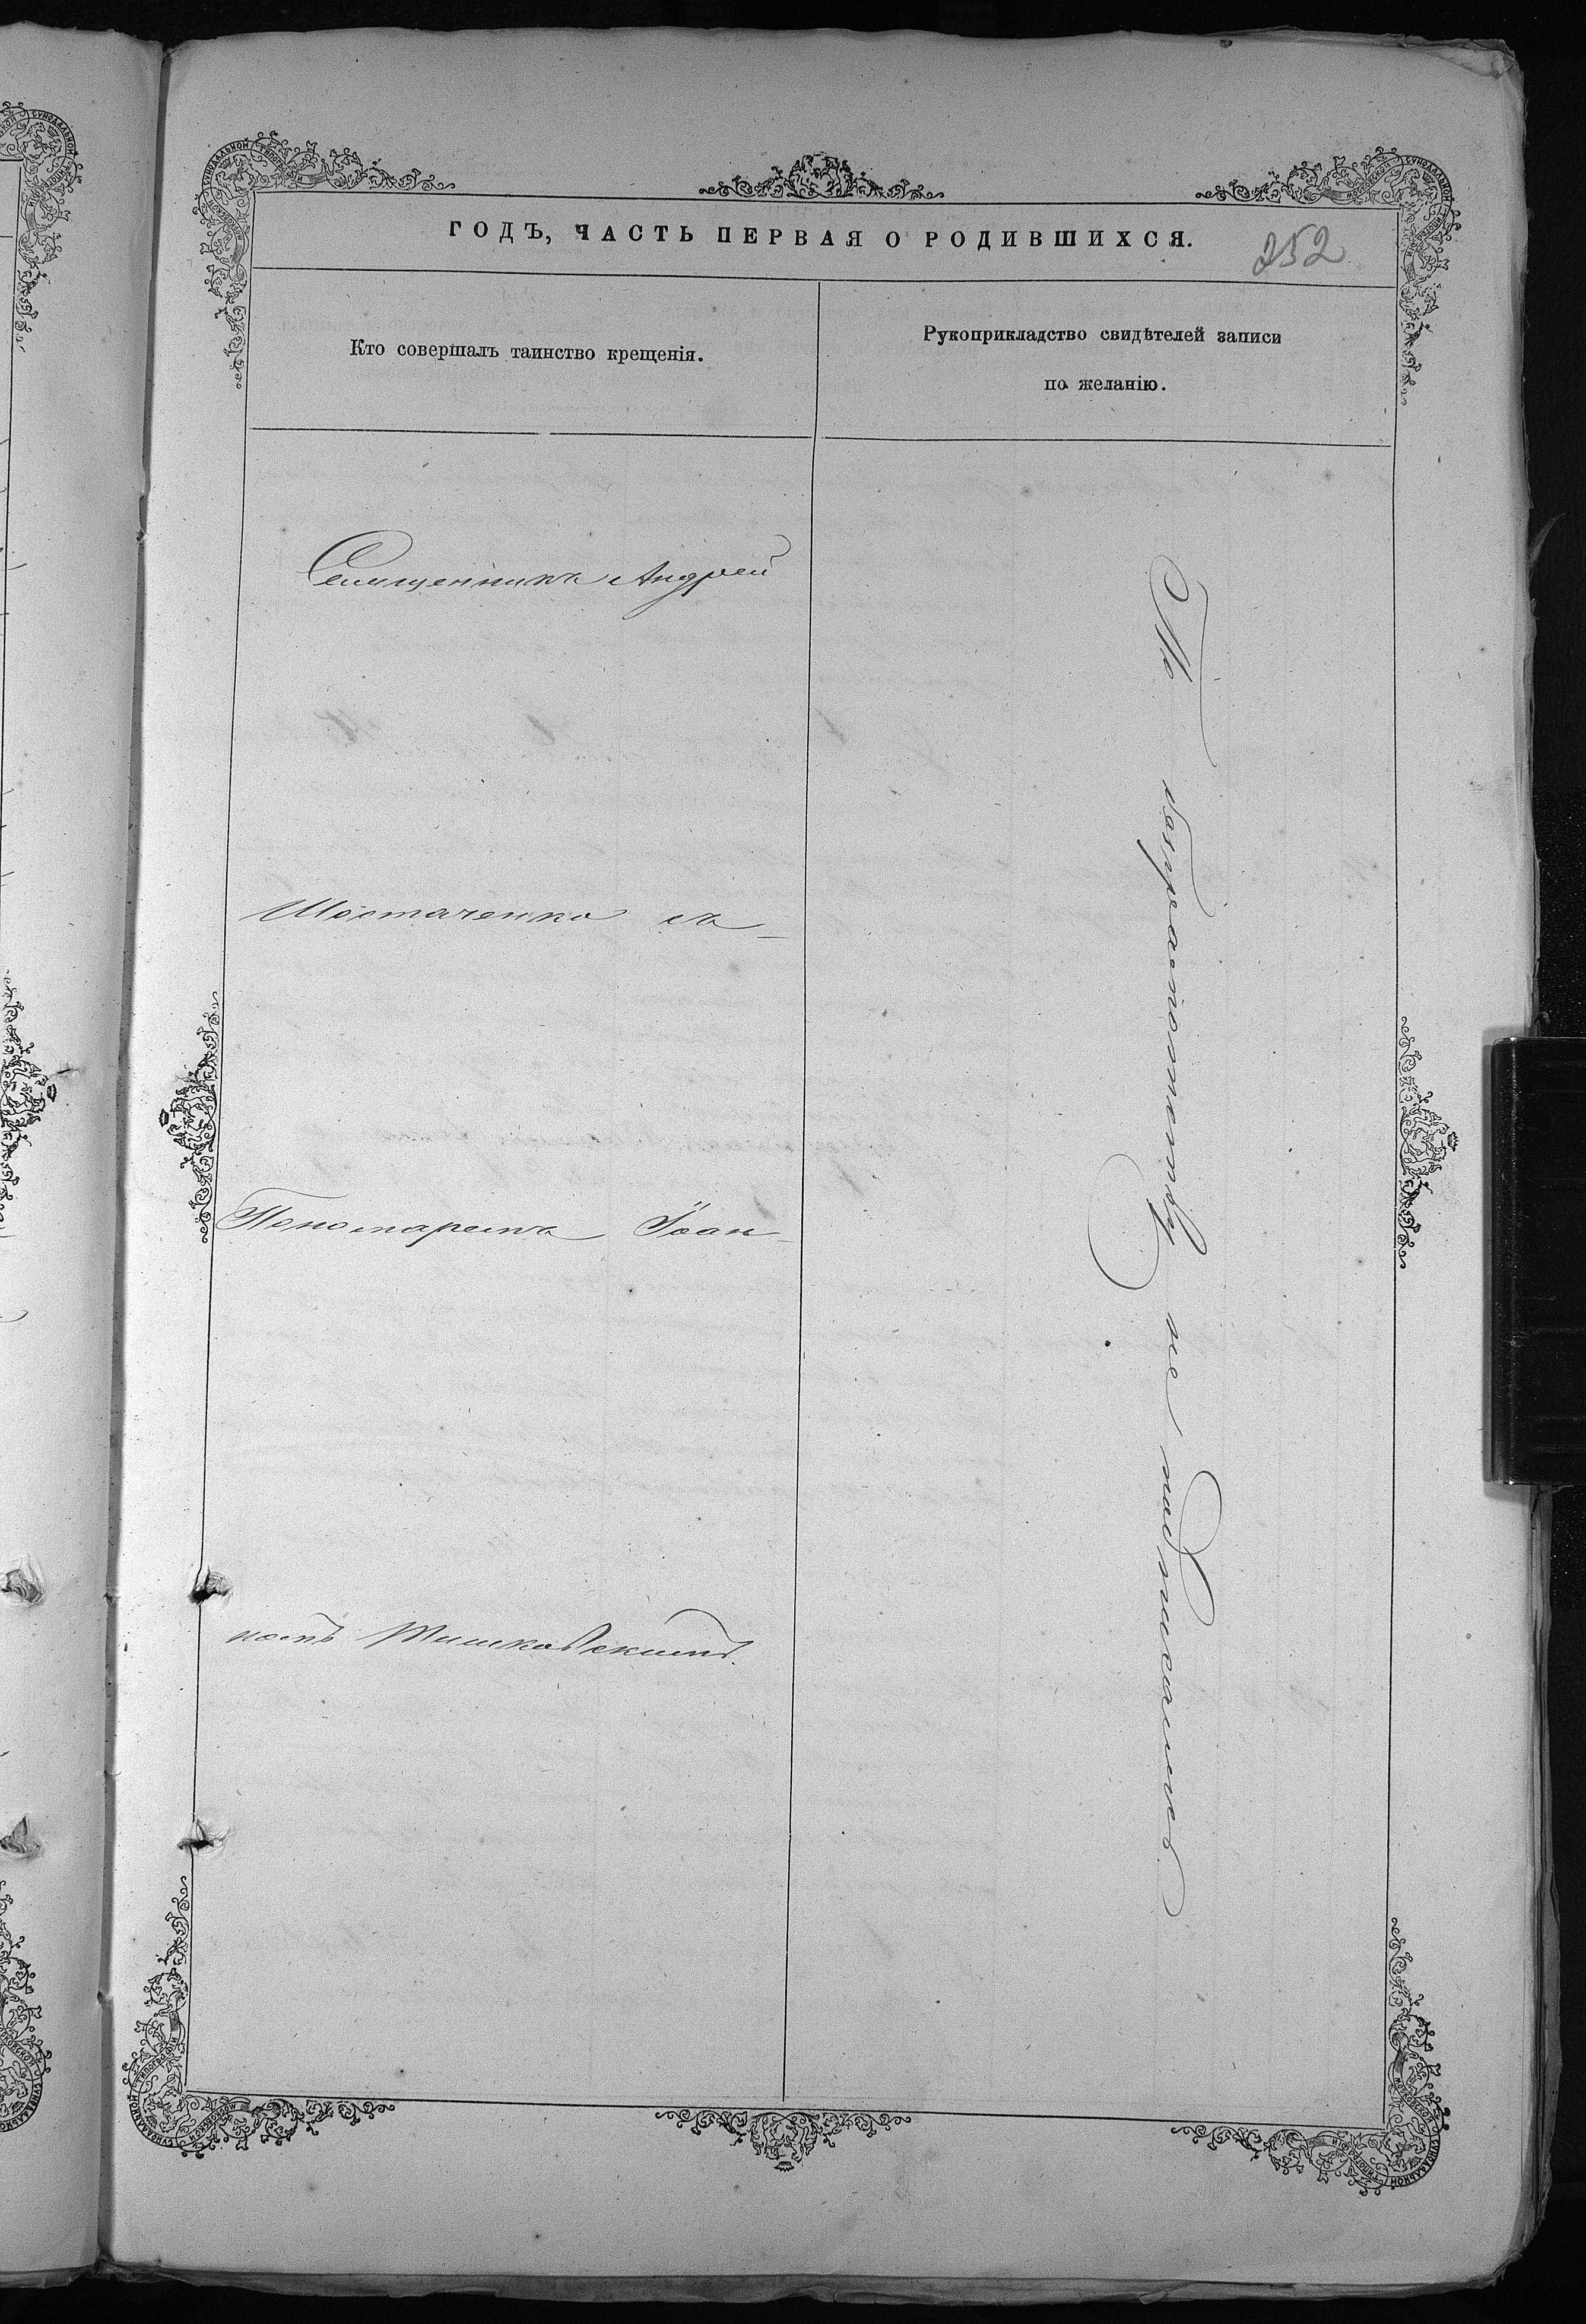 ГОДЪ, ЧАСТЬ ПЕРВАЯ О РОДИВШИХСЯ.
252
Кто совершалъ таинство крещенія.
Рукоприкладство свидѣтелей записи
по желанію.
Священникъ Андрей
Шостаченко съ
Пономаремъ Іоан-
номъ Тишковскимъ.
По безграмотству не подписались